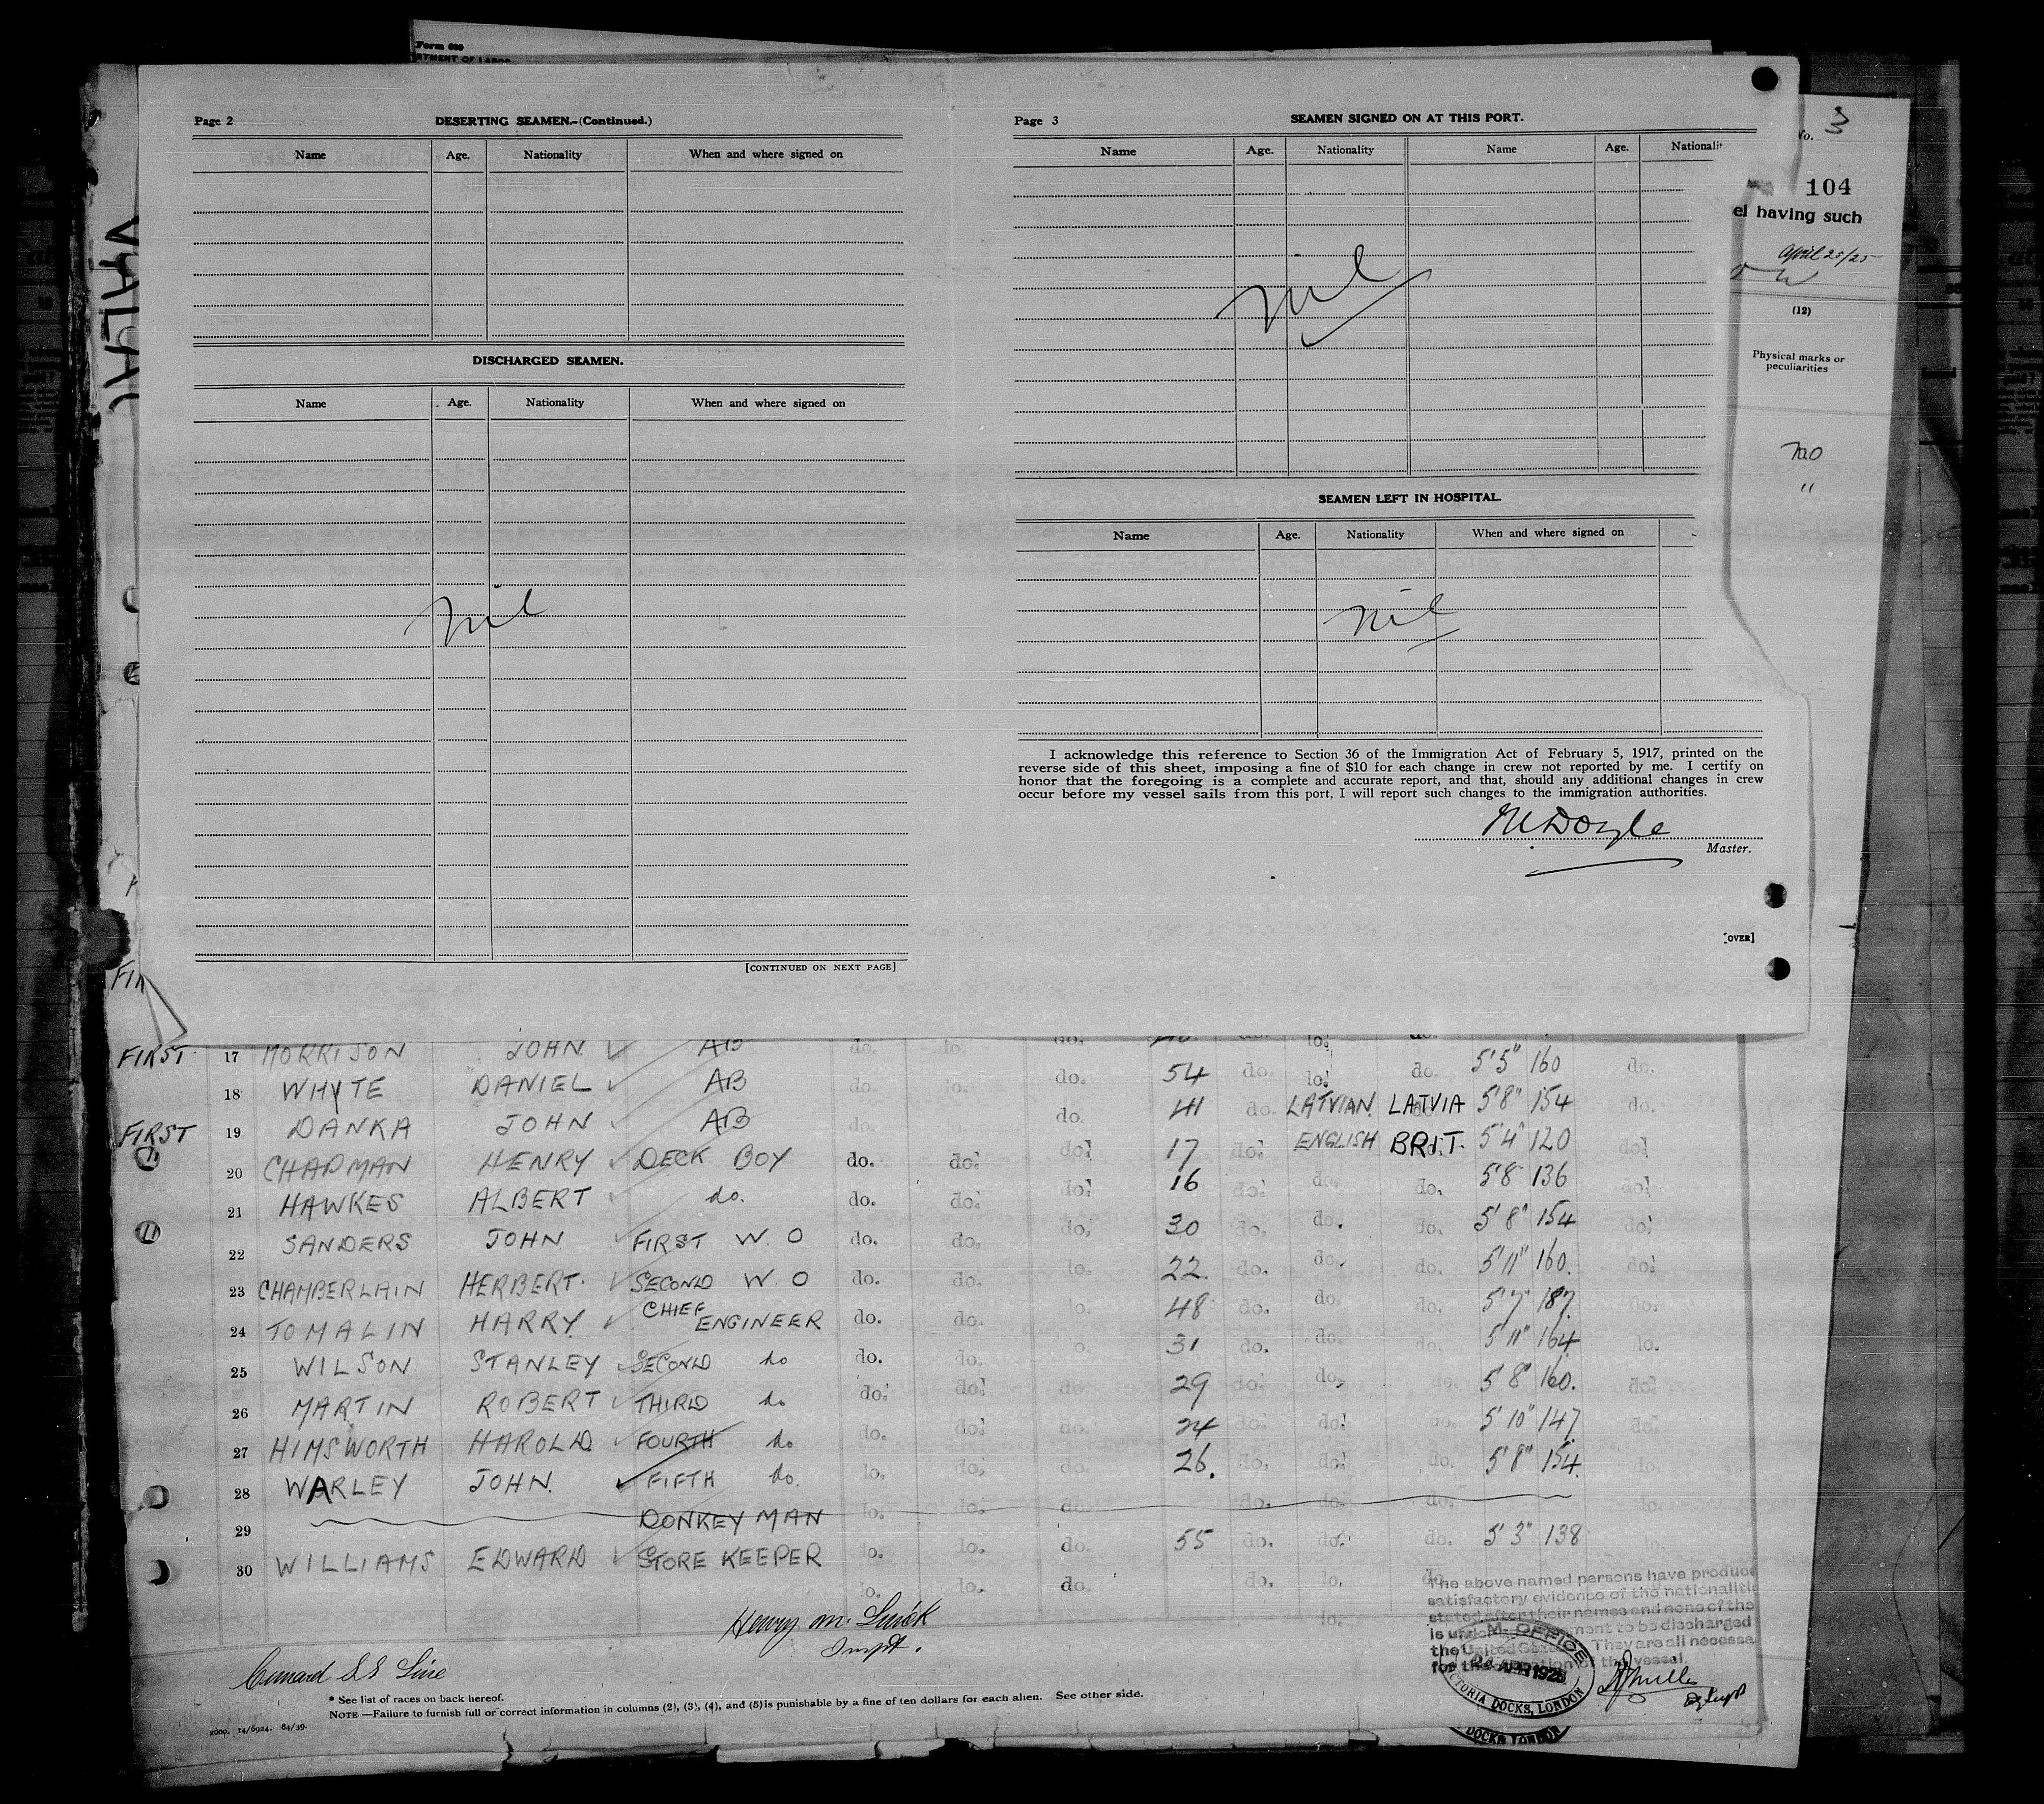 Form 689
Page 2
DESERTING SEAMEN.—(Continued.)
Name Age. Nationality When and where signed on
DISCHARGED SEAMEN.
Name Age. Nationality When and where signed on
Nil
[CONTINUED ON NEXT PAGE]
Page 3
SEAMEN SIGNED ON AT THIS PORT.
Name Age. Nationality Name Age. Nationalit
Nil
SEAMEN LEFT IN HOSPITAL.
Name Age. Nationality When and where signed on
Nil
I acknowledge this reference to Section 36 of the Immigration Act of February 5, 1917, printed on the
reverse side of this sheet, imposing a fine of $10 for each change in crew not reported by me. I certify on
honor that the foregoing is a complete and accurate report, and that, should any additional changes in crew
occur before my vessel sails from this port, I will report such changes to the immigration authorities.
M Doyle
Master.
[OVER]
No. 3
104
el having such
April 25/25
(12)
Physical marks or
peculiarities
no
"
FIRST 17 MORRISON JOHN AB do. do. do. do. do. do. 5'5" 160 do.
18 WHYTE DANIEL AB do. do. do. 54 do. do. do. 5'8" 154 do.
FIRST 19 DANKA JOHN AB do. do. do. 41 do. LATVIAN LATVIA 5'4" 120 do.
20 CHAPMAN HENRY DECK BOY do. do. do. 17 do. ENGLISH BRIT. 5'8 136 do.
21 HAWKES ALBERT do. do. do. do. 16 do. do. do. 5'8" 154 do.
22 SANDERS JOHN FIRST W. O do. do. do. 30 do. do. do. 5'11" 160. do.
23 CHAMBERLAIN HERBERT. SECOND W. O do. do. do. 22. do. do. do. 5'7" 187. do.
24 TOMALIN HARRY CHIEF ENGINEER do. do. do. 48 do. do. do. 5'11" 164. do.
25 WILSON STANLEY SECOND do do. do. do. 31 do. do. do. 5'8" 160. do.
26 MARTIN ROBERT THIRD do do. do. do. 29 do. do. do. 5'10" 147. do.
27 HIMSWORTH HAROLD FOURTH do do. do. do. 24 do. do. do. 5'8" 154. do.
28 WARLEY JOHN. FIFTH do. do. do. do. 26. do. do. do.
29 DONKEY MAN do. do. do. do. do. do.
30 WILLIAMS EDWARD STORE KEEPER do. do. do. 55 do. do. do. 5'3" 138
The above named persons have produc
satisfactory evidence of the nationaliti
stated after their names and none of the
is und ment to be discharged
the United States They are all necessa
for the operation of the vessel.
Henry M.
Inspt.
Cunard S S Line
* See list of races on back hereof.
NOTE.—Failure to furnish full or correct information in columns (2), (3), (4), and (5) is punishable by a fine of ten dollars for each alien. See other side.
2000. 14/6924. 84/39.
M. OFFICE
APR 1925
VICTORIA DOCKS, LONDON
DOCKS, LONDON